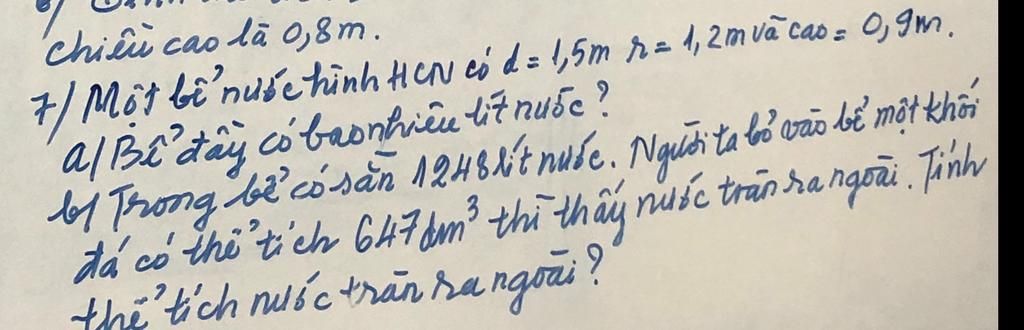 chiều cao là 0,8m.
7/ Một bể nước hình HCN có d = 1,5m r = 1,2m và cao = 0,9m.
a/ Bể đầy có bao nhiêu lít nước?
b/ Trong bể có sẵn 1248 lít nước. Người ta bỏ vào bể một khối
đá có thể tích 647dm³ thì thấy nước tràn ra ngoài. Tính
thể tích nước tràn ra ngoài?